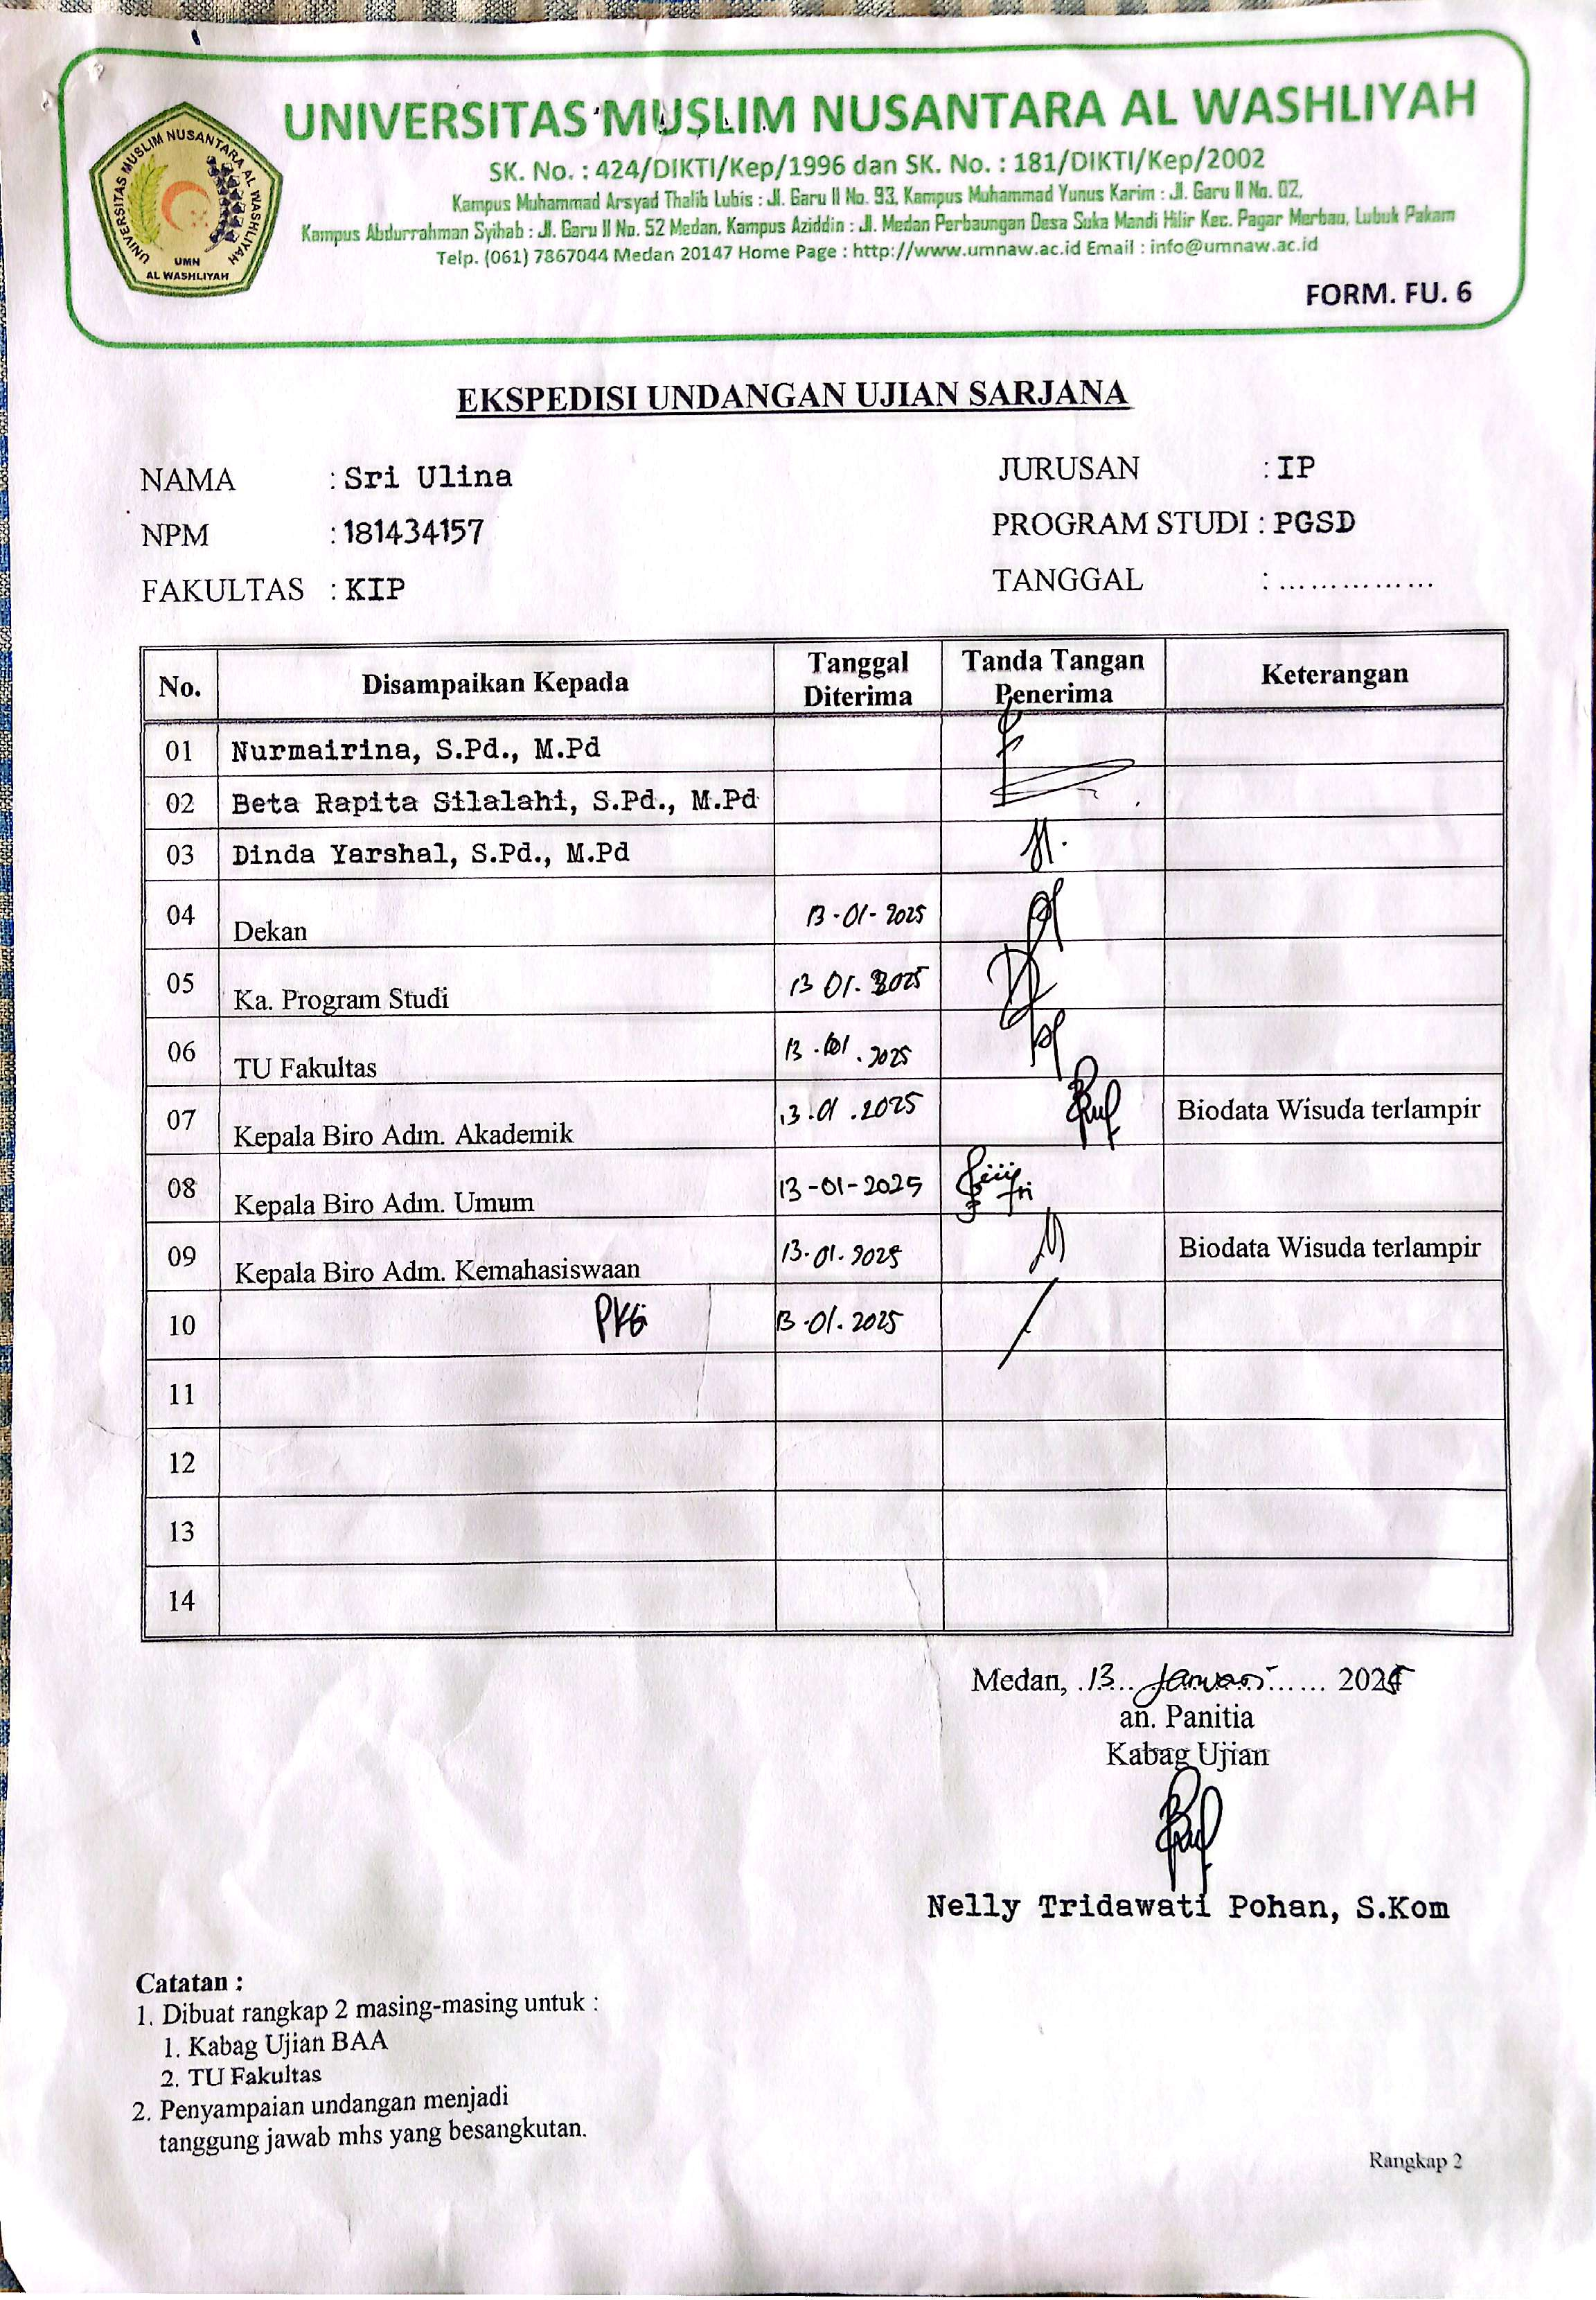 UNIVERSITAS MUSLIM NUSANTARA AL WASHLIYAH
SK. No. : 424/DIKTI/Kep/1996 dan SK. No. : 181/DIKTI/Kep/2002
Kampus Muhammad Arsyad Thalib Lubis : Jl. Garu II No. 93, Kampus Muhammad Yunus Karim : Jl. Garu II No. 02,
Kampus Abdurrahman Syihab : Jl. Garu II No. 52 Medan, Kampus Aziddin : Jl. Medan Perbaungan Desa Suka Mandi Hilir Kec. Pagar Merbau, Lubuk Pakam
Telp. (061) 7867044 Medan 20147 Home Page : http://www.umnaw.ac.id Email : info@umnaw.ac.id
UNIVERSITAS MUSLIM NUSANTARA AL WASHLIYAH
UMN
AL WASHLIYAH
FORM. FU. 6
EKSPEDISI UNDANGAN UJIAN SARJANA
NAMA : Sri Ulina JURUSAN : IP
NPM : 181434157 PROGRAM STUDI : PGSD
FAKULTAS : KIP TANGGAL : ...............
No. Disampaikan Kepada Tanggal Diterima Tanda Tangan Penerima Keterangan
01 Nurmairina, S.Pd., M.Pd
02 Beta Rapita Silalahi, S.Pd., M.Pd
03 Dinda Yarshal, S.Pd., M.Pd
04 Dekan 13-01-2025
05 Ka. Program Studi 13 01. 2025
06 TU Fakultas 13.01.2025
07 Kepala Biro Adm. Akademik 13.01.2025 Biodata Wisuda terlampir
08 Kepala Biro Adm. Umum 13-01-2025
09 Kepala Biro Adm. Kemahasiswaan 13.01.2025 Biodata Wisuda terlampir
10 PKG 13-01.2025
11
12
13
14
Medan, 13 Januari 2025
an. Panitia
Kabag Ujian
Nelly Tridawati Pohan, S.Kom
Catatan :
1. Dibuat rangkap 2 masing-masing untuk :
1. Kabag Ujian BAA
2. TU Fakultas
2. Penyampaian undangan menjadi
tanggung jawab mhs yang besangkutan.
Rangkap 2